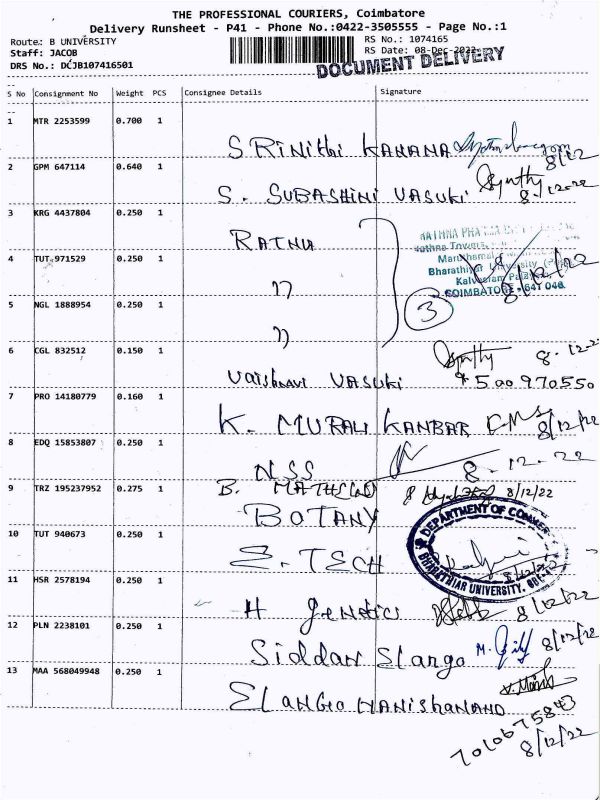 THE PROFESSIONAL COURIERS, Coimbatore
Delivery Runsheet - P41 - Phone No.:0422-3505555 - Page No.:1
Route: B UNIVERSITY RS No.: 1074165
Staff: JACOB RS Date: 08-Dec-2022
DRS No.: DCJB107416501
DOCUMENT DELIVERY
S No Consignment No Weight PCS Consignee Details Signature
1 MTR 2253599 0.700 1
SRinithi KAHANA 8/12
2 GPM 647114 0.640 1
S. SUBASHINI VASUKI 8.12.22
3 KRG 4437804 0.250 1
RATNA
RATHNA
Rathna Towers,
4 TUT 971529 0.250 1
Bharathiyar University
Kalveeram
COIMBATORE - 641 046
8/12/22
5 NGL 1888954 0.250 1
"
3
"
6 CGL 832512 0.150 1
Vaishnavi VASUKI 8.12.22
9500970550
7 PRO 14180779 0.160 1
K. MURALI KANBAR 8/12/22
8 EDQ 15853807 0.250 1
NSS 8.12.22
9 TRZ 195237952 0.275 1 B. 8/12/22
BOTANY
DEPARTMENT OF COMMERCE
BHARATHIAR UNIVERSITY.
10 TUT 940673 0.250 1
E. TECH 8/12/22
11 HSR 2578194 0.250 1
H genetics 8/12/22
12 PLN 2238101 0.250 1
Siddan Slango 8/12/22
13 MAA 568049948 0.250 1
ELANGO MANISHANAND
7010675843
8/12/22